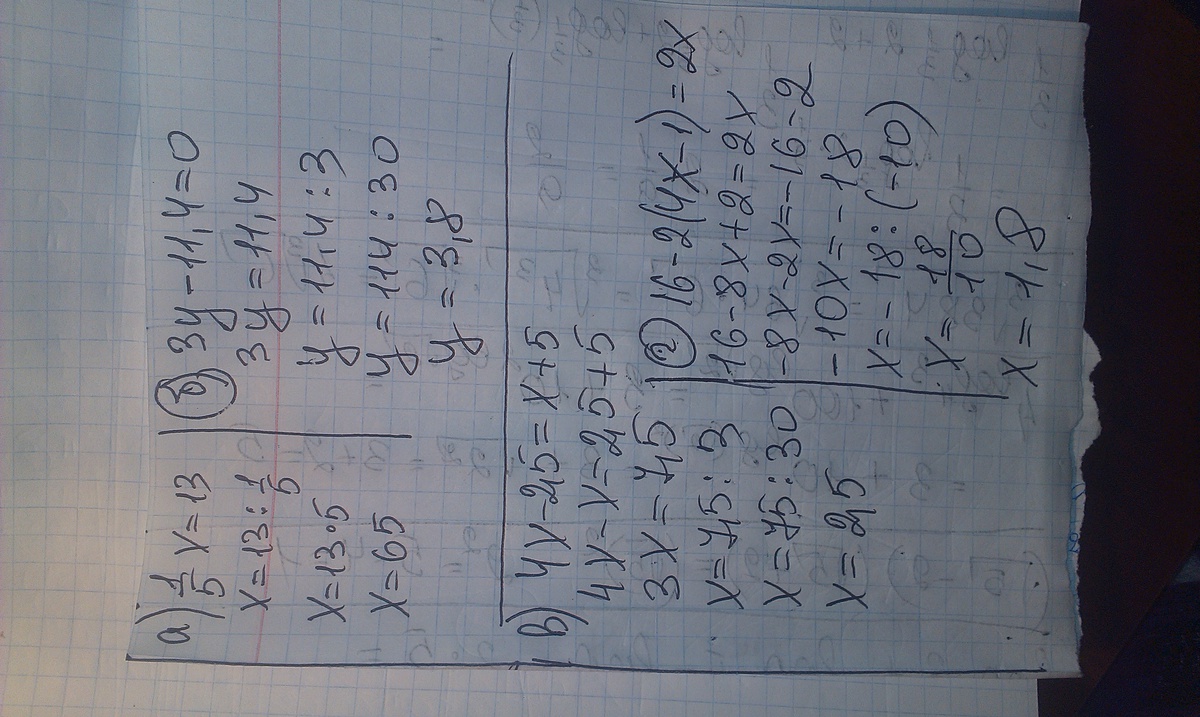 а) 1/5 x = 13
x = 13 : 1/5
x = 13 · 5
x = 65
б) 3y - 11,4 = 0
3y = 11,4
y = 11,4 : 3
y = 114 : 30
y = 3,8
в) 4x - 2,5 = x + 5
4x - x = 2,5 + 5
3x = 7,5
x = 7,5 : 3
x = 75 : 30
x = 2,5
г) 16 - 2(4x - 1) = 2x
16 - 8x + 2 = 2x
-8x - 2x = -16 - 2
-10x = -18
x = -18 : (-10)
x = 18/10
x = 1,8